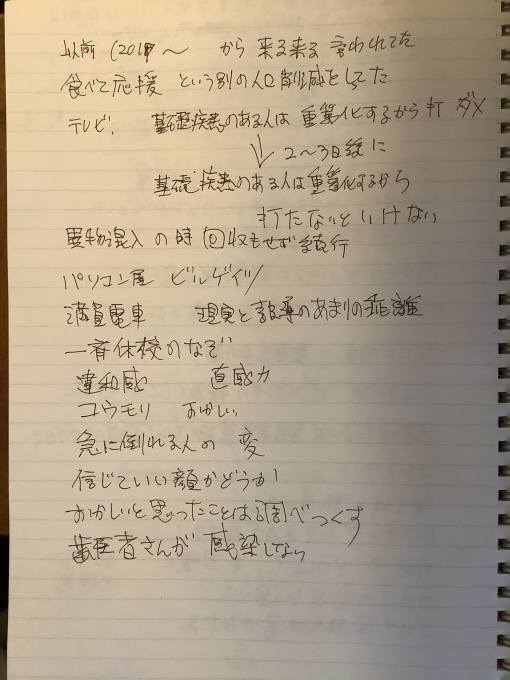 以前(201 ～ から来る来る言われてた
食べて応援 という別の人口削減をしてた
テレビ. 基礎疾患のある人は 重篤化するから打ダメ
↓ 2～3日後に
基礎疾患のある人は重篤化するから
打たないといけない
異物混入の時 回収もせず続行
パソコン屋 ビルゲイツ
満員電車 現実と報道のあまりの乖離
一斉休校のなぞ
違和感 直感力
コウモリ おかしい
急に倒れる人の 変
信じていい顔かどうか
おかしいと思ったことは調べつくす
歯医者さんが 感染しない